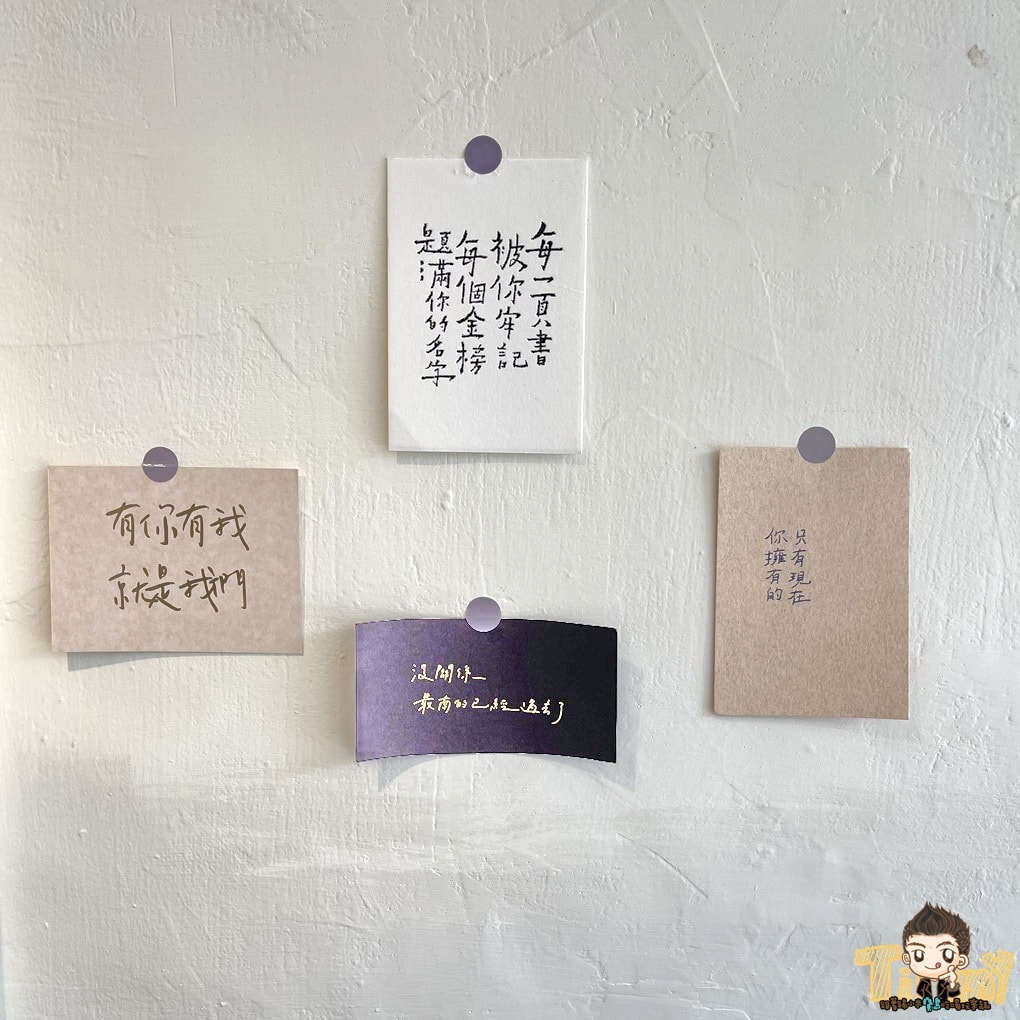 每一頁書
被你牢記
每個金榜
題滿你的名字
有你有我
就是我們
沒關係
最的已經過去了
只有現在
你擁有的